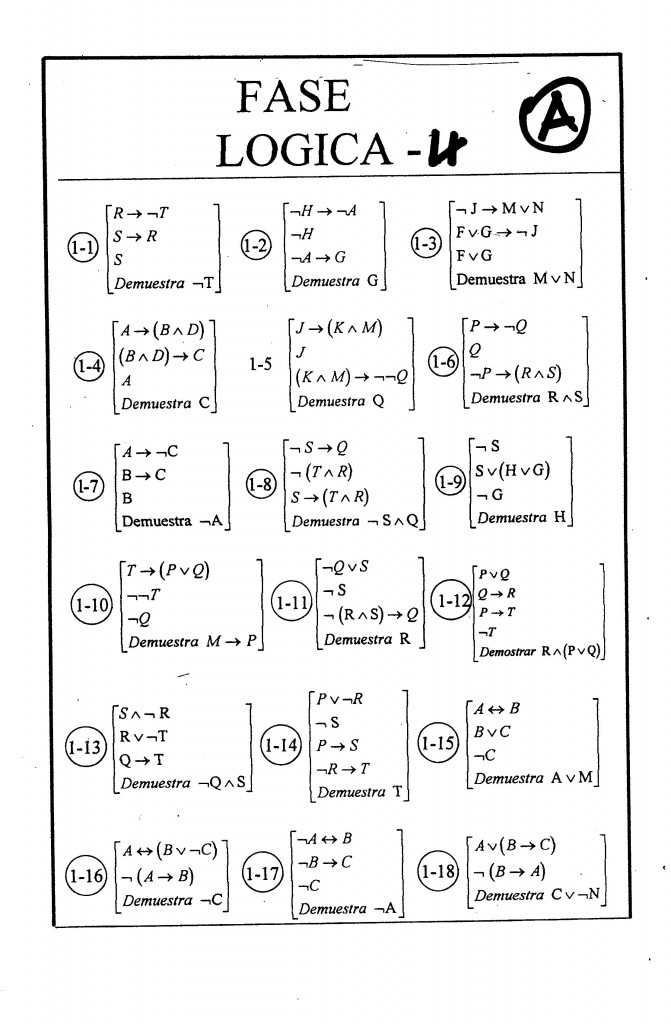 FASE
LOGICA -4
A
1-1
R → ¬T
S → R
S
Demuestra ¬T
1-2
¬H → ¬A
¬H
¬A → G
Demuestra G
1-3
¬ J → M ∨ N
F ∨ G → ¬ J
F ∨ G
Demuestra M ∨ N
1-4
A → (B ∧ D)
(B ∧ D) → C
A
Demuestra C
1-5
J → (K ∧ M)
J
(K ∧ M) → ¬¬Q
Demuestra Q
1-6
P → ¬Q
Q
¬P → (R ∧ S)
Demuestra R ∧ S
1-7
A → ¬C
B → C
B
Demuestra ¬A
1-8
¬ S → Q
¬ (T ∧ R)
S → (T ∧ R)
Demuestra ¬ S ∧ Q
1-9
¬ S
S ∨ (H ∨ G)
¬ G
Demuestra H
1-10
T → (P ∨ Q)
¬¬T
¬Q
Demuestra M → P
1-11
¬Q ∨ S
¬ S
¬ (R ∧ S) → Q
Demuestra R
1-12
P ∨ Q
Q → R
P → T
¬T
Demostrar R ∧ (P ∨ Q)
1-13
S ∧ ¬ R
R ∨ ¬T
Q → T
Demuestra ¬Q ∧ S
1-14
P ∨ ¬R
¬ S
P → S
¬R → T
Demuestra T
1-15
A ↔ B
B ∨ C
¬C
Demuestra A ∨ M
1-16
A ↔ (B ∨ ¬C)
¬ (A → B)
Demuestra ¬C
1-17
¬A ↔ B
¬B → C
¬C
Demuestra ¬A
1-18
A ∨ (B → C)
¬ (B → A)
Demuestra C ∨ ¬N